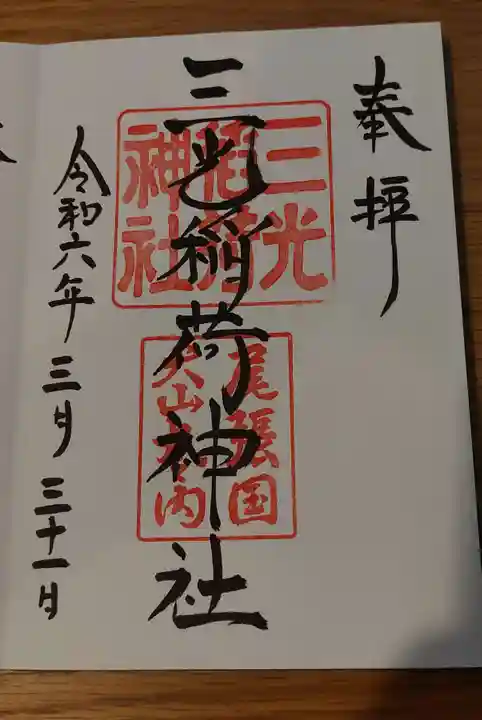 奉拝
三光稲荷神社
三光
稲荷
神社
尾張国
犬山城内
令和六年 三月 三十一日